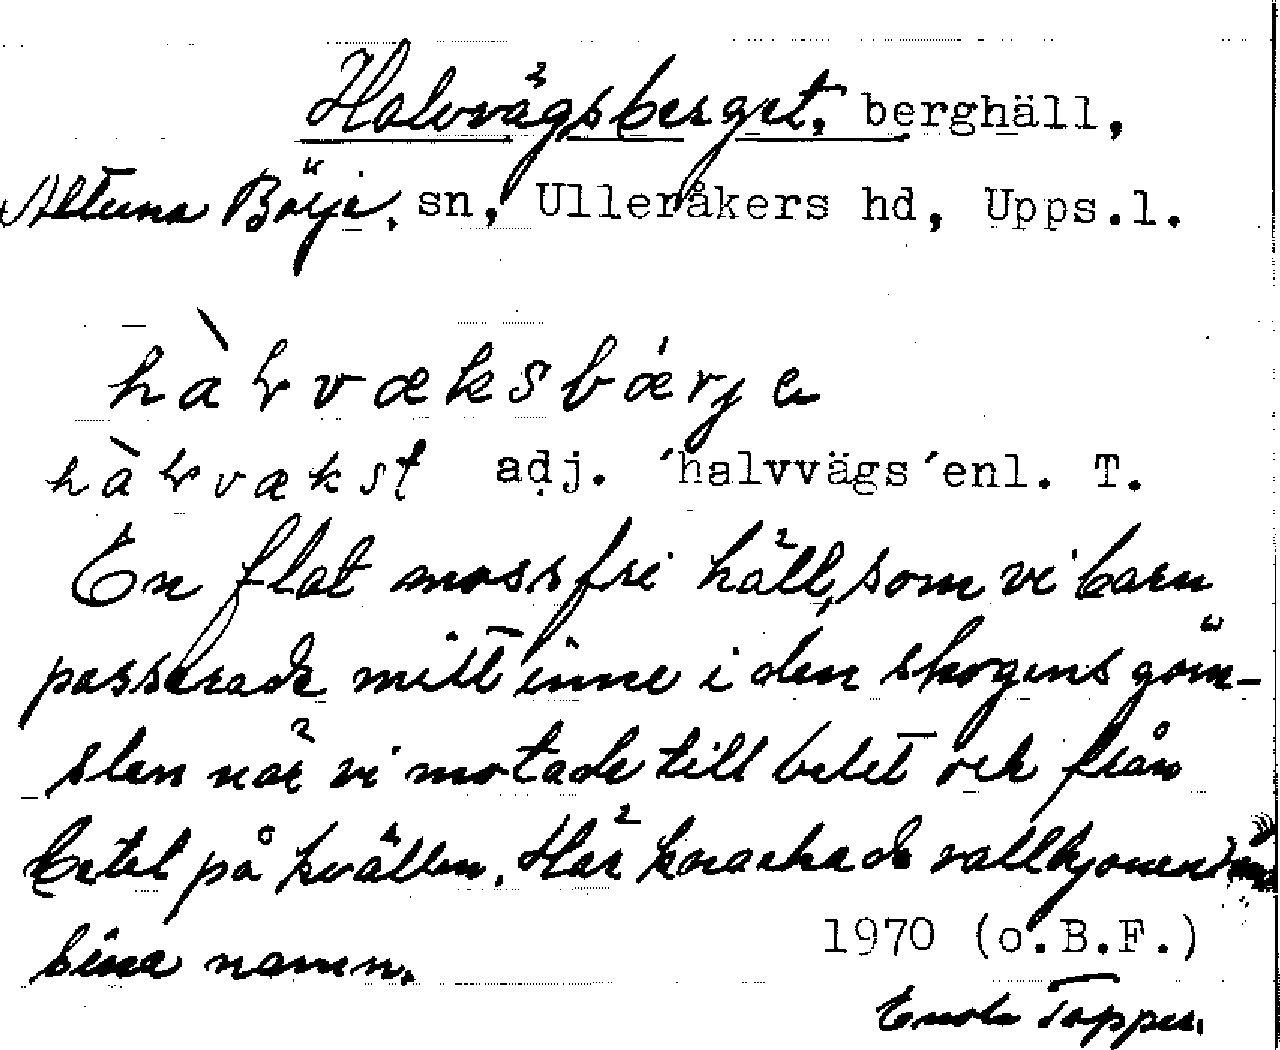 Halvvägsberget, berghäll,
Altuna Börje, sn, Ulleråkers hd, Upps.l.
hàḷvæksbærja
hàḷvækst adj. ´halvvägs´enl. T.
En flat mossfri häll, som vi barn
passerade mitt inne i den skogens göm-
slen när vi motade till betet och från
betet på kvällen. Här knackade vallhjonen in
sina namn.
1970 (o.B.F.)
Enok Topper.